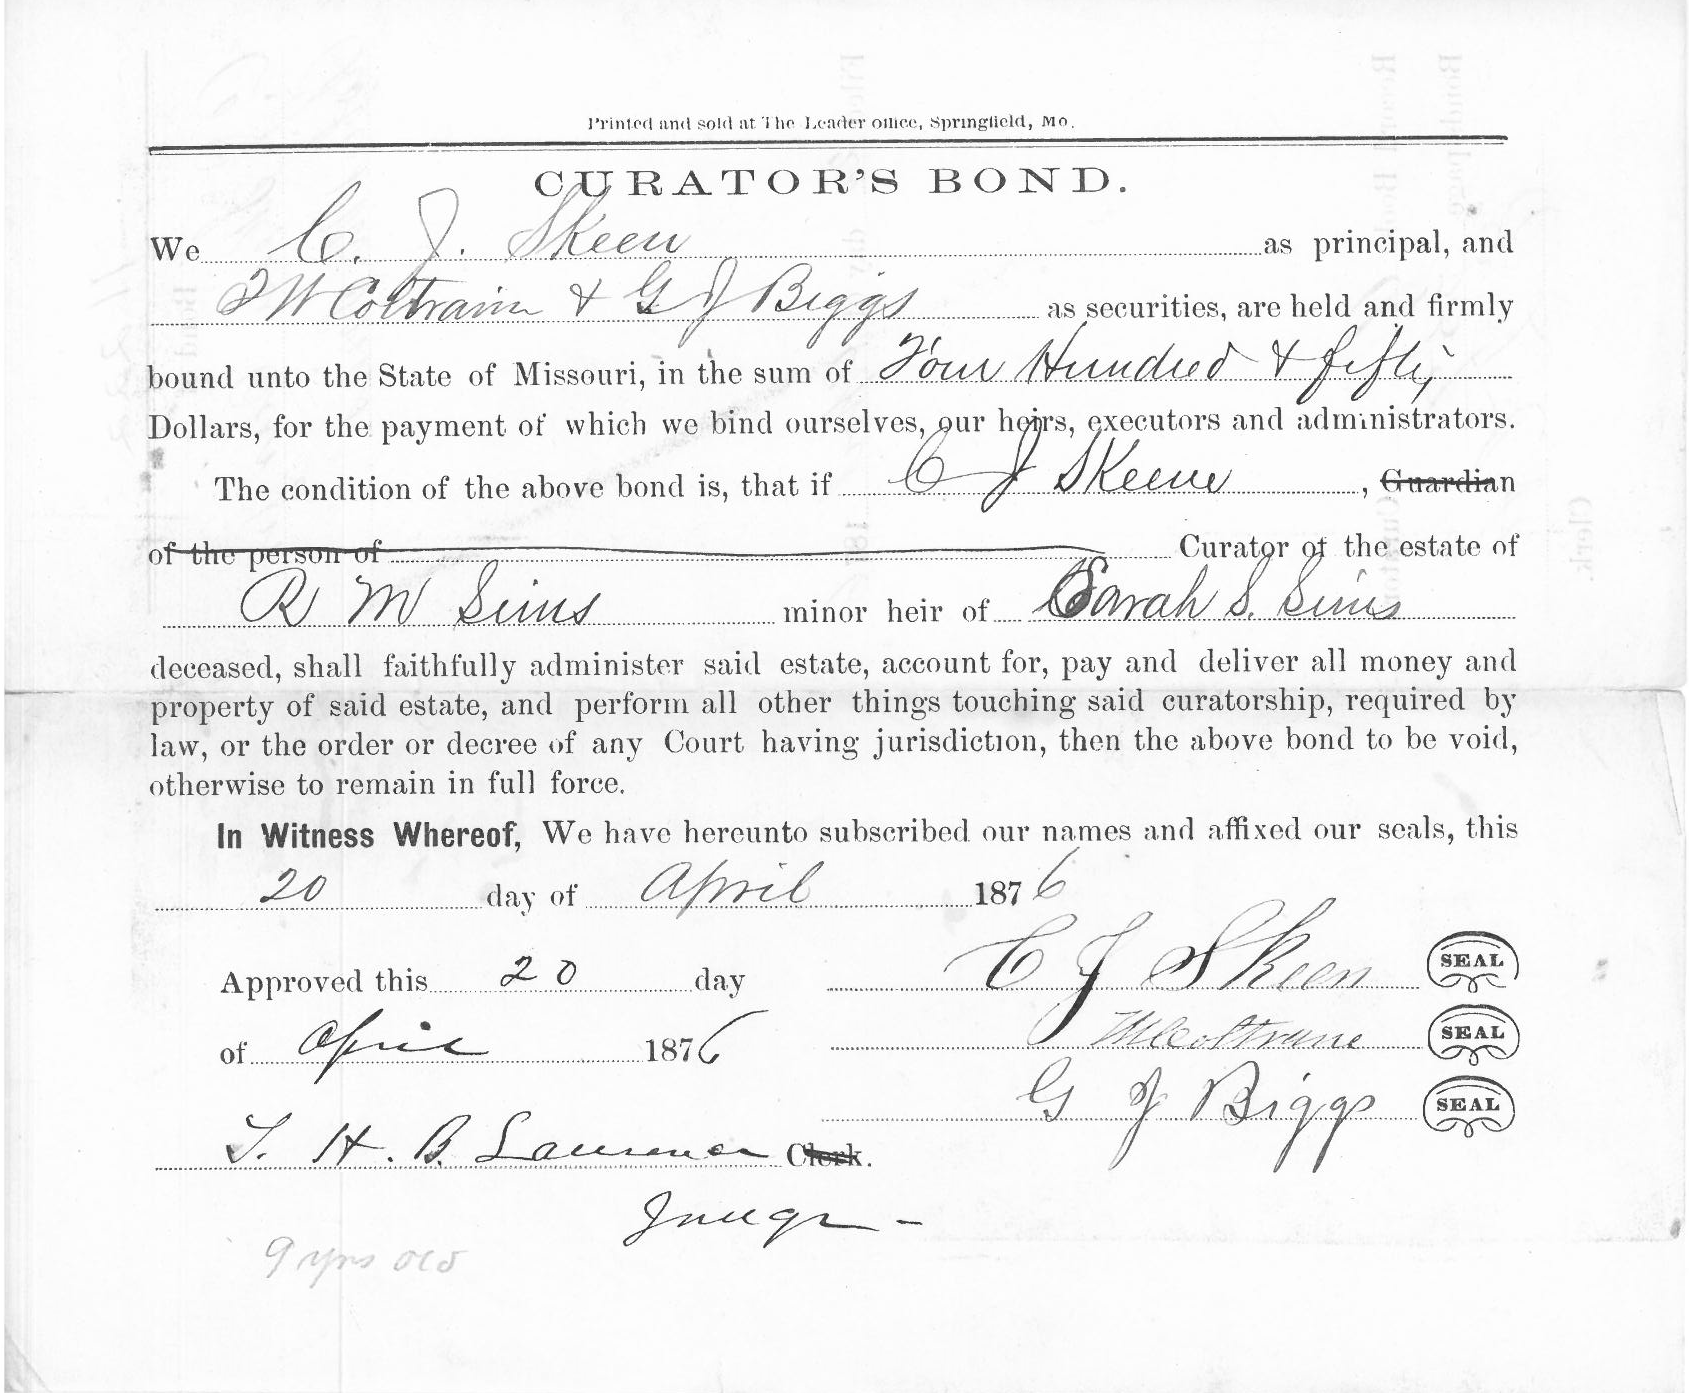 Printed and sold at The Leader office, Springfield, Mo.
CURATOR'S BOND.
We C. J. Skeen as principal, and
Coltrain & G J Biggs as securities, are held and firmly
bound unto the State of Missouri, in the sum of Four Hundred & fifty
Dollars, for the payment of which we bind ourselves, our heirs, executors and administrators.
The condition of the above bond is, that if C J Skeene, Guardian
of the person of Curator of the estate of
R M Sims minor heir of Sarah S. Sims
deceased, shall faithfully administer said estate, account for, pay and deliver all money and
property of said estate, and perform all other things touching said curatorship, required by
law, or the order or decree of any Court having jurisdiction, then the above bond to be void,
otherwise to remain in full force.
In Witness Whereof, We have hereunto subscribed our names and affixed our seals, this
20 day of April 1876
C J Skeen SEAL
Approved this 20 day
Coltrane SEAL
of April 1876
G J Biggs SEAL
H. B. Lawrence Clerk.
Judge -
9 yrs old